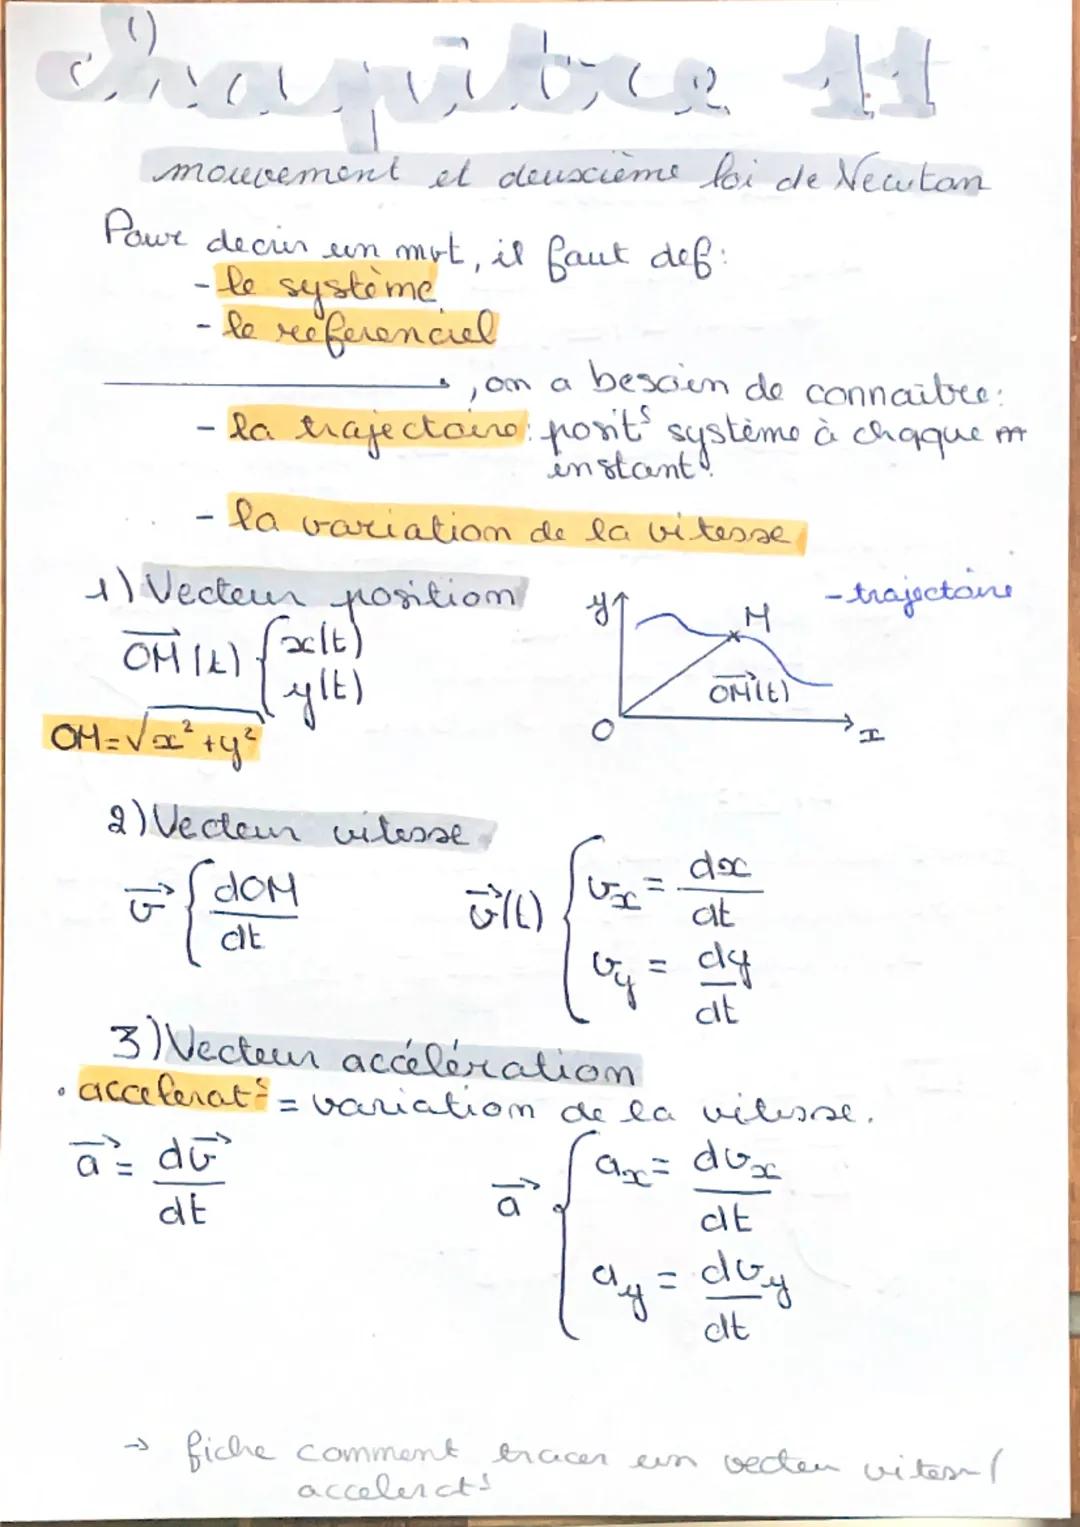 Chapitre 11
mouvement et deuxième loi de Newton
Pour decrir un mvt, il faut def:
- le système
- le réferenciel
, on a besoin de connaitre:
- la trajectoire: posit° système à chaque
instant
- la variation de la vitesse
1) Vecteur position
- trajectoire
OM⃗(t) { x(t)
y(t)
OM = √x² + y²
y
M
OM⃗(t)
O
x
2) Vecteur vitesse
v⃗ { dOM/dt
v⃗(t) { vx = dx/dt
vy = dy/dt
3) Vecteur accélération
• accelerat° = variation de la vitesse.
a⃗ = dv⃗/dt
a⃗ { ax = dvx/dt
ay = dvy/dt
→ fiche comment tracer un vecteu vitess /
accelerat°